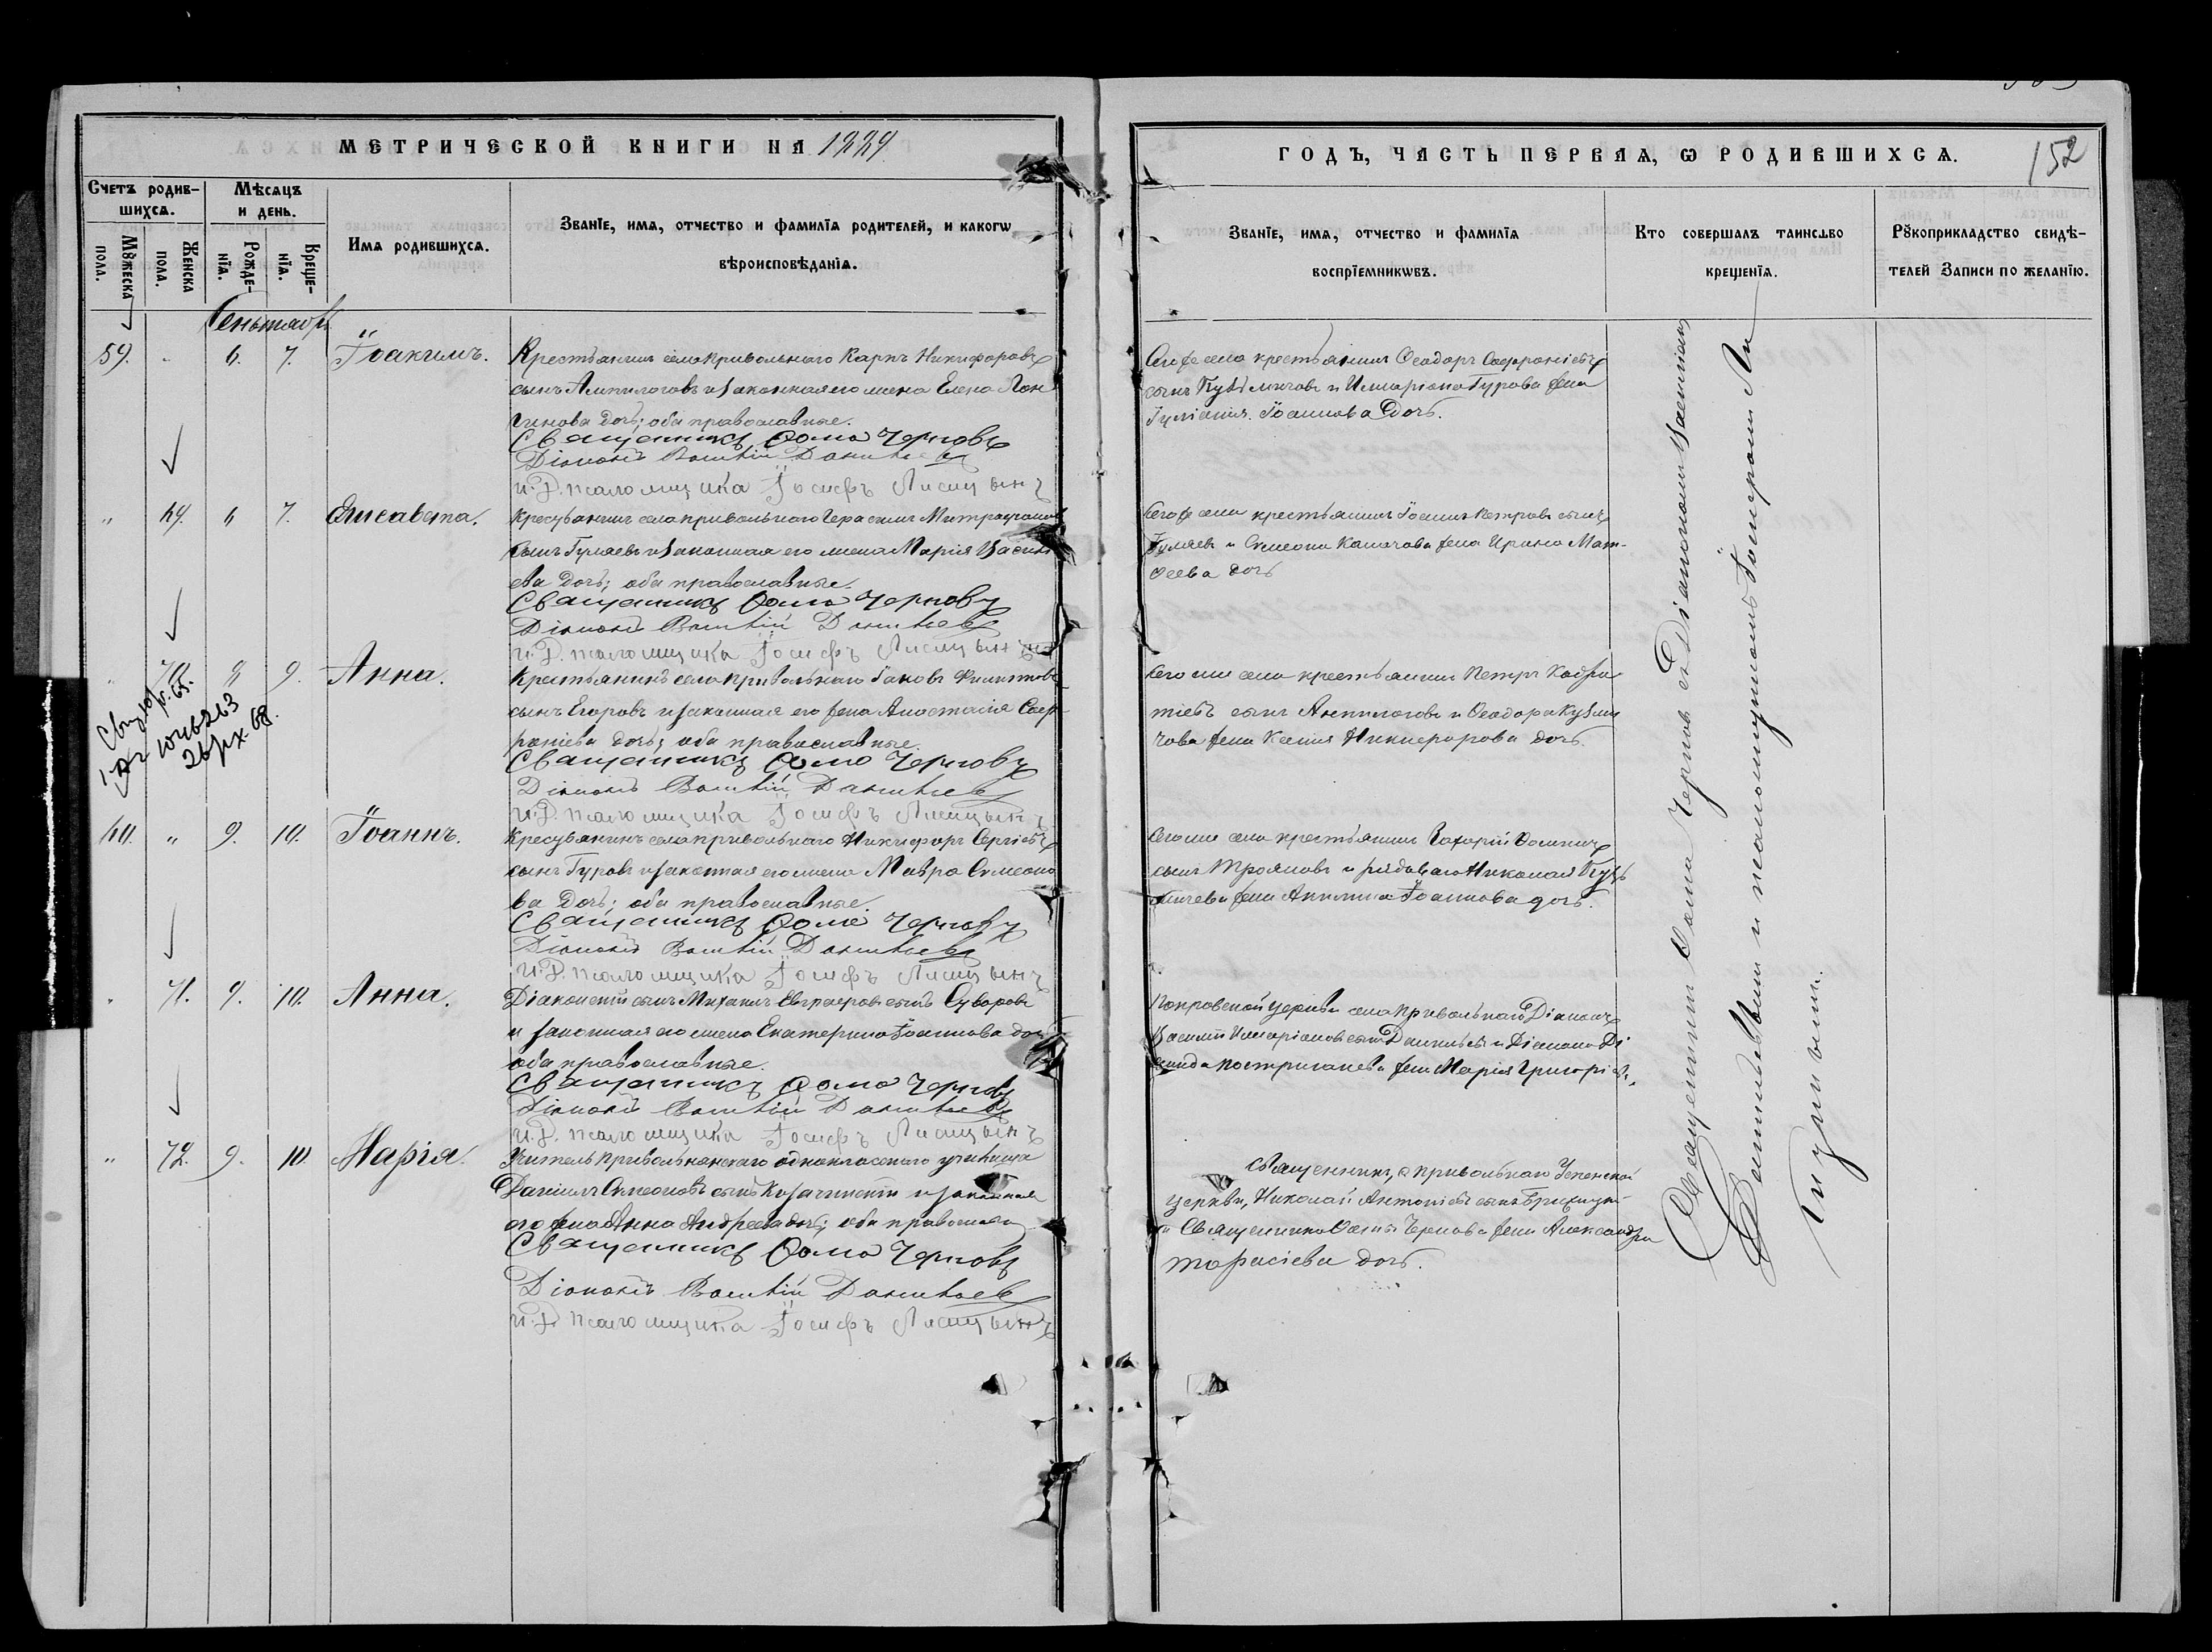 МЕТРИЧЕСКОЙ КНИГИ НА 1889
ГОДЪ, ЧАСТЬ ПЕРВАЯ, Ѡ РОДИВШИХСѦ.
152
Счетъ родив-
шихсѧ.
Мѣсѧцъ
и день.
Мꙋжеска
пола.
Женска
пола.
Рожде-
нїѧ.
Креще-
нїѧ.
Имѧ родившихсѧ.
Званїе, имѧ, отчество и фамилїѧ родителей, и какогѡ
вѣроисповѣданїѧ.
Званїе, имѧ, отчество и фамилїѧ
воспрїемникѡвъ.
Кто совершалъ таинство
крещенїѧ.
Рꙋкоприкладство свидѣ-
телей записи по желанїю.
Сентября
59. 6. 7. Іоакимъ.
Крестьянинъ села Привольнаго Карпъ Никифоровъ
сынъ Ампилоговъ и законная его жена Елена Лон
гинова дочь; оба православные.
Священникъ Ѳома Черновъ
Діаконъ Василій Данильевъ
И. Д. псаломщика Іосифъ Лисицынъ
Сего же села крестьянинъ Ѳеодоръ Сафроніевъ
сынъ Кузьмичовъ и Илларіона Гурова жена
Іуліанія Іоаннова дочь.
" 69. 6 7. Елисавета.
Крестьянинъ села Привольнаго Герасимъ Митрофановъ
сынъ Гуляевъ и законная его жена Марія Василь
ева дочь; оба православные.
Священникъ Ѳома Черновъ
Діаконъ Василій Данильевъ
И. Д. псаломщика Іосифъ Лисицынъ
Сего же села крестьянинъ Іоаннъ Петровъ сынъ
Гуляевъ и Симеона Калачова жена Ирина Мат-
ѳеева дочь
" 70. 8 9. Анна.
Крестьянинъ села Привольнаго Іаковъ Филиповъ
сынъ Егоровъ и законная его жена Анастасія Соф
роніева дочь; оба православные.
Священникъ Ѳома Черновъ
Діаконъ Василій Данильевъ
И. Д. псаломщика Іосифъ Лисицынъ
Сего же села крестьянинъ Петръ Кодра
тіевъ сынъ Анпилоговъ и Ѳеодора Кузьми
чова жена Ксенія Никифорова дочь.
60. " 9. 10. Іоаннъ.
Крестьянинъ села Привольнаго Никифоръ Сергіевъ
сынъ Гуровъ и законная его жена Мавра Симеоно
ва дочь; оба православные.
Священникъ Ѳома Черновъ
Діаконъ Василій Данильевъ
И. Д. псаломщика Іосифъ Лисицынъ
Сего же села крестьянинъ Захарій Ѳоминъ
сынъ Трояновъ и рядоваго Николая Кузь
мичева жена Акилина Іоаннова дочь.
" 71. 9. 10. Анна.
Діаконскій сынъ Михаилъ Евграфовъ сынъ Суворовъ
и законная его жена Екатерина Іоаннова дочь
оба православные.
Священникъ Ѳома Черновъ
Діаконъ Василій Данильевъ
И. Д. псаломщика Іосифъ Лисицынъ
Покровской церкви села Привольнаго Діаконъ
Василій Илларіоновъ сынъ Данильевъ и Діакона
жена Марія Григоріев.
" 72. 9. 10. Марія.
Учитель Привольнянскаго однокласснаго училища
Даніилъ Симеоновъ сынъ и законная
его жена Анна Андреева дочь; оба православн
Священникъ Ѳома Черновъ
Діаконъ Василій Данильевъ
И. Д. псаломщика Іосифъ Лисицынъ
Священникъ, с. Привольнаго Успенской
церкви, Николай Антоніевъ сынъ
и Священника Ѳомы Чернова жена Александра
Тарасіева дочь.
Священникъ Ѳома Черновъ съ Діакономъ Василіемъ
Данильевымъ и псаломщикомъ Іосифомъ Ли
сицынымъ.